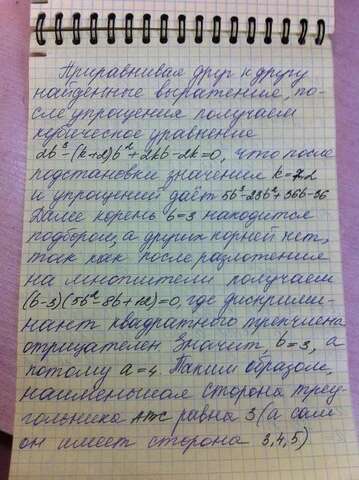 Приравнивая друг к другу
найденные выражения, по-
сле упрощения получаем
кубическое уравнение
2b³-(k+2)b²+2kb-2k=0, что после
подстановки значения k=7,2
и упрощений даёт 5b³-23b²+36b-36
Далее корень b=3 находится
подбором, а других корней нет,
так как после разложения
на множители получаем
(b-3)(5b²-8b+12)=0, где дискрими-
нант квадратного трехчлена
отрицателен Значит b=3, а
потому a=4. Таким образом,
наименьшая сторона треу-
гольника равна 3 (а сам
он имеет сторона 3,4,5)